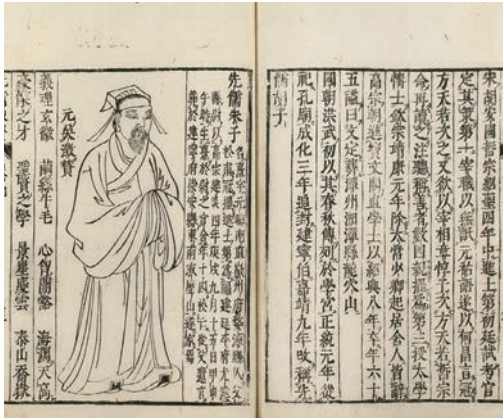 宋胡安國哲宗紹聖四年中進士初廷試考官
定其策第一宰職以無詆元祐語遂以何昌言冠
方天若次之又欲以宰相章惇子次天若哲宗
命再讀之注聽稱善者數四親擢爲第三授太學
博士欽宗靖康元年除太常少卿起居舍人皆辭
高宗朝進寶文閣直學士以紹興八年卒年六十
五謚曰文定葬潭州湘潭縣龍穴山
國朝洪武初以其春秋傳列於學宮正統元年從
祀孔廟成化三年追封建寧伯嘉靖九年改稱先
儒胡子
先儒朱子
名熹字元晦南直徽州府婺源縣人父
元吳澂贊
義理玄微 繭絲牛毛 心胷開豁 海闊天高
豪傑之才 聖賢之學 景星慶雲 泰山喬嶽